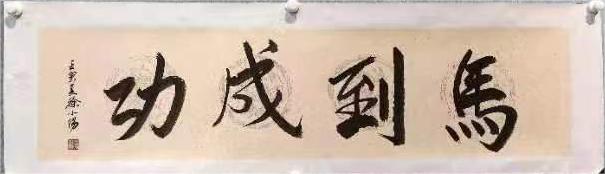 馬到成功
壬寅夏徐小陽